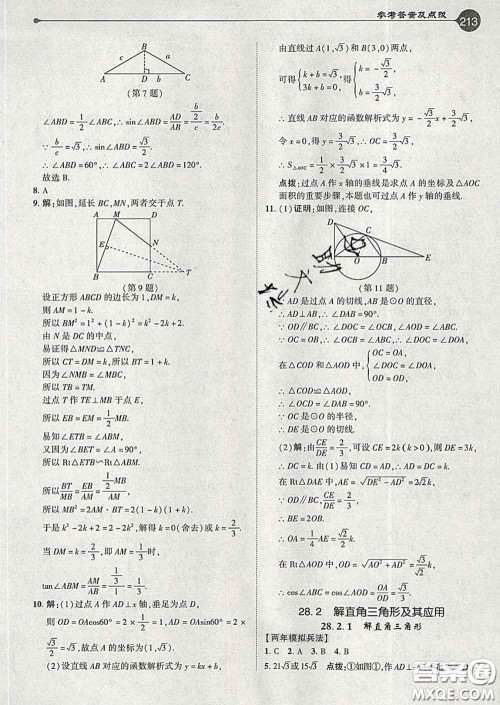 参考答案及点拨
213
B
b/2
A D C
(第7题)
∠ABD=1/2∠ABC,∴sin∠ABD=AD/AB=(b/2)/c=b/2c.
∵b/c=√3,∴sin∠ABD=√3/2.
∴∠ABD=60°,∴∠ABC=2∠ABD=120°.
故选B.
8. A
9. 解:如图,延长BC,MN,两者交于点T.
A M D
E N
B C T
(第9题)
设正方形ABCD的边长为1,DM=k,
则AM=1-k.
所以BM²=1²+(1-k)²=k²-2k+2.
由N是DC的中点,
易证得△MND≌△TNC,
所以CT=DM=k,所以BT=1+k.
因为∠NMB=∠MBC,
所以TB=TM.
过点T作TE⊥MB于点E,
所以EB=EM=1/2MB.
易知∠ETB=∠ABM,
又因为∠BET=∠A=90°,
所以Rt△ETB∽Rt△ABM.
所以BT/MB=EB/AM=1/2MB/AM.
所以MB²=2AM·BT=2(1-k)·(1+k).
于是k²-2k+2=2-2k²,解得k=0(舍去)或k=2/3.
当DM=k=2/3,即AM=1/3时,
tan∠ABM=AM/AB=1/3/1=1/3.
10. 解:(1)过点A作AD⊥x轴,垂足为点D,
则OD=OAcos60°=2×1/2=1,AD=OAsin60°=2×√3/2=√3,
故点A的坐标为(1,√3).
(2)设直线AB对应的函数解析式为y=kx+b,
由直线过A(1,√3)和B(3,0)两点,
可得{k+b=√3, 3k+b=0,解得{k=-√3/2, b=3/2√3.
∴直线AB对应的函数解析式为y=-√3/2x+3/2√3.
令x=0,得y=3/2√3,∴OC=3/2√3.
∴S△AOC=1/2×3/2√3×1=3/4√3.
点拨:过点A作x轴的垂线是求点A的坐标及△AOC面积的重要步骤,本题也可过点A作y轴的垂线.
11. (1)证明:如图,连接OC,
D C
A O B E
(第11题)
∵AD是过点A的切线,AB是⊙O的直径,
∴AD⊥AB,∴∠DAB=90°.
∵OD∥BC,∴∠DOC=∠OCB,∠AOD=∠ABC.
∵OC=OB,∴∠OCB=∠ABC.
∴∠DOC=∠AOD.
在△COD和△AOD中,{OC=OA, ∠DOC=∠AOD, OD=OD,
∴△COD≌△AOD,
∴∠OCD=∠DAB=90°.
∴OC⊥DE.
∵OC是⊙O的半径,
∴DE是⊙O的切线.
(2)解:由CE/DE=2/3,可设CE=2k(k>0),则DE=3k,
∴DC=k.由(1)易知CD=AD,∴AD=DC=k.
∴在Rt△DAE中,AE=√DE²-AD²=2√2k.
∵OD∥BC,∴CE/DE=BE/OE=2/3.
∴BE=2OB,∴BE=2OA.
∴OA/AE=1/4,∴OA=√2/2k.
∴在Rt△AOD中,OD=√AO²+AD²=√6/2k.
∴cos∠ABC=cos∠AOD=OA/OD=√3/3.
28.2 解直角三角形及其应用
28.2.1 解直角三角形
【两年模拟兵法】
1. C 2. A 3. B 4. B
5. 21√3或15√3 点拨:如图①,作AD⊥
答案圈
MXQE.COM